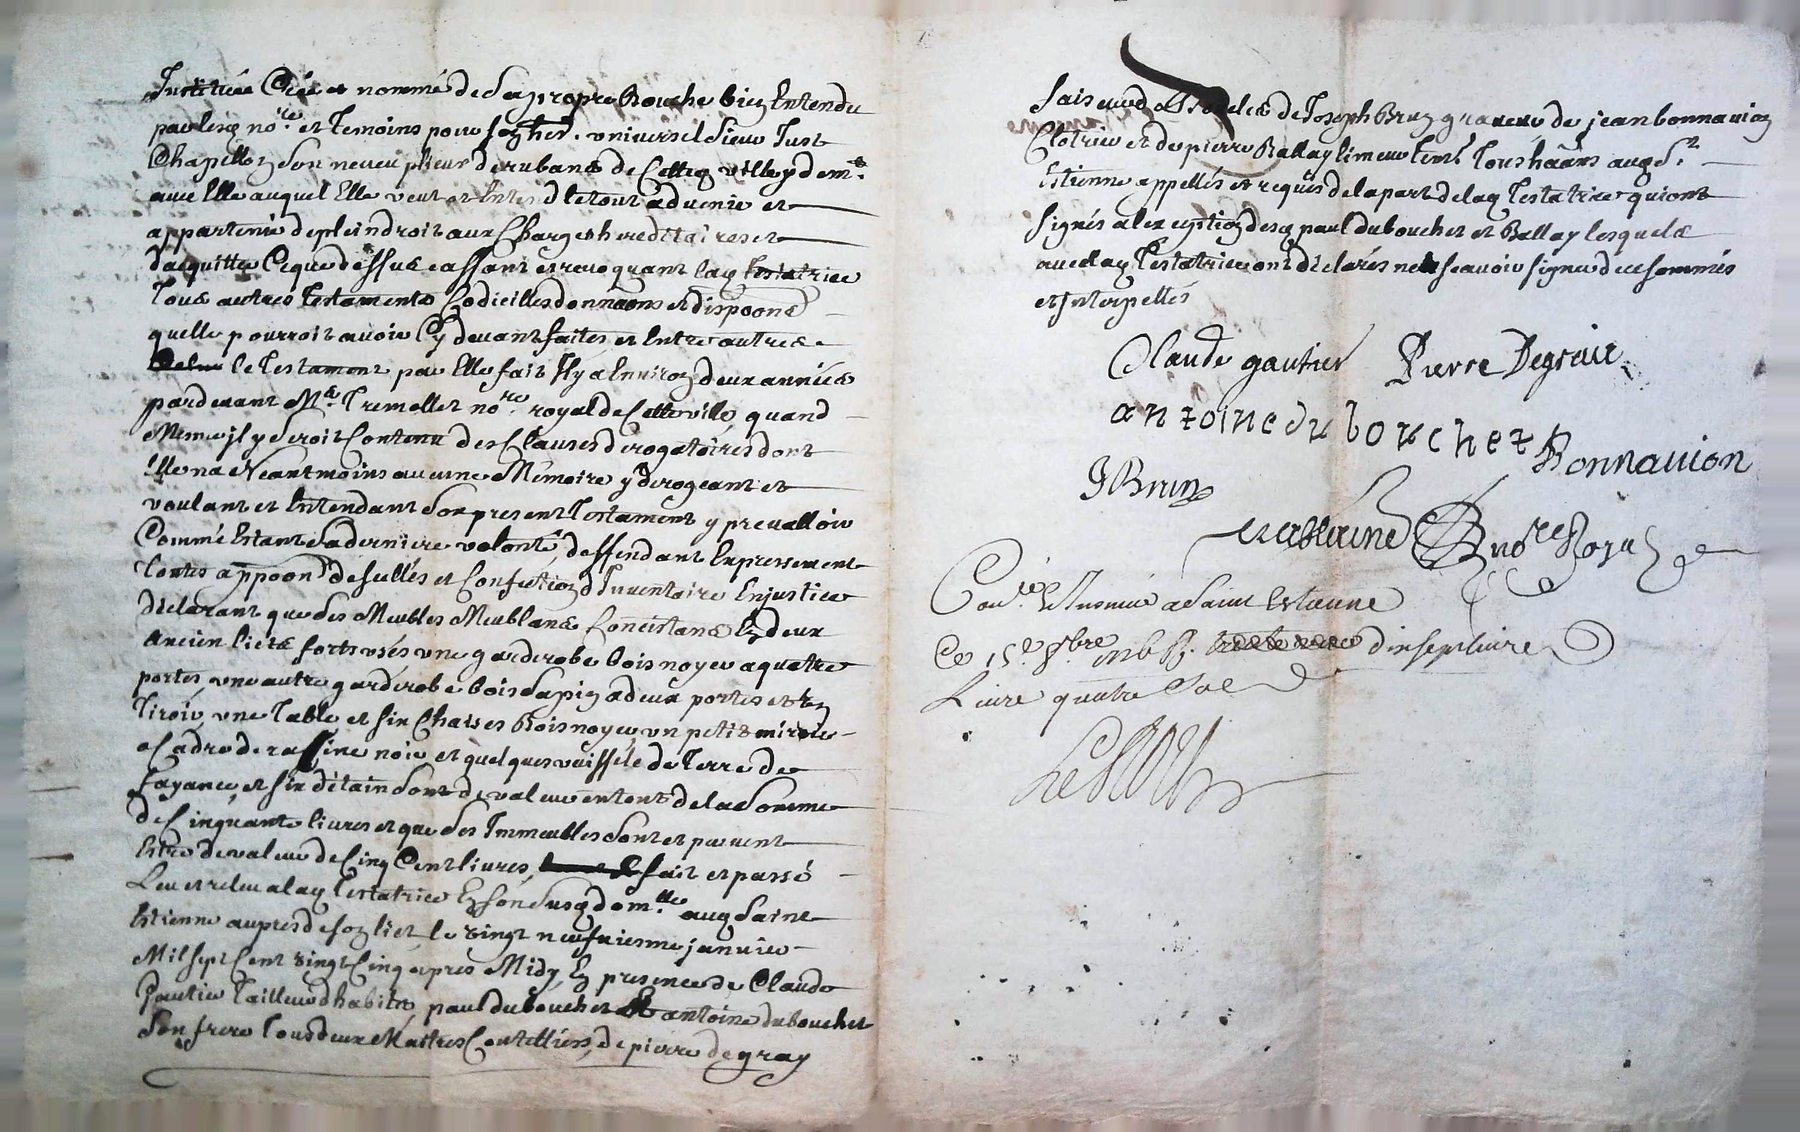 Instituée Créé et nommé de Sa propre Bouche bien Entendu
par lesq nore. et Temoins pour son her. universel Sieur Just
Chapellon Son neveu plieur de rubans de Cetteq ville y demt.
avec Elle auquel Elle veut et Entend le tout advenir et
appartenir de plein droit aux Charges hereditaires et
dacquitter Ceque dessus cassant et revoquant laq Testatrice
Tous autres Testaments Codicilles donnaons et dispoons
quelle pourroit avoir Cy devant faites et Entre autres
le Testament par Elle fait Il y a Environ deux années
pardevant Me. Tremollet nore. royal de Cette ville, quand
Meme jl y Seroit Contenu des Clauses derogatoires dont
Elle na Neantmoins aucune Mémoire y derogeant et
voulant et Entendant Son present Testament y prevalloir
Commé Estant Sa derniere volonté, deffendant Expressement
toutes appoon de sellés et Confection dInventaire En justice
déclarant que Ses Meubles Meublans Concistans En deux
ancien liets forts usés une garderobe bois noyer a quatre
portes une autre garderobe bois Sapin a deux portes et un
Tiroir, une Table, et six Chaises Bois noyer, un petit miroir
a Cadre de racine noir et quelques vaisselé de Terre de
fayance et six détain Sont de valeur entout de la Somme
de Cinquante livres et que Ses Immeubles Sont et peuvent
Estre de valeur de Cinq Cent livres, fait et passé
Leu et releu a laq Testatrice En Son Susq domlle auq Saint
Estienne aupres de son liet, le vingt neufuiesme janvier
Mil Sept Cent vingt Cinq apres Midy, En presence de Claude
Gautier Tailleur dhabits, paul duboucher et antoine duboucher
Son frere tous deux Maitres Coutelliers, de pierre degray
faiseur de de Joseph Brun graveur de jean bonnavion
Clotrier et de pierre Ballay limeur temt. Tous hãans auq St.
Estienne appellés et requis de la part de laq Testatrice qui ont
Signés a lexception desq paul duboucher et Ballay lesquels
avec laq Testatrice ont déclarés ne sçavoir signer de ce sommés
et Interpellés
Claude gautier Pierre Degraix
antoine du bouchet Bonnavion
J Brun
nore Royal
Conle. & Insinué a Saint Estienne
Ce 15e. 8bre dinsep livre
Livre quatre Sols